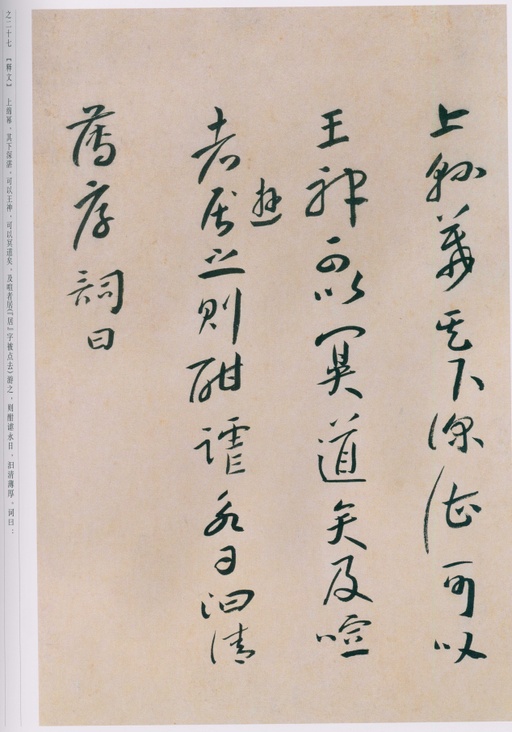 上緜羃其下深湛可以
王神可以冥道矣及喧
遊
者居之則酣謔永日汩清
薄厚詞曰
之二十七 【释文】 上绵幂,其下深湛,可以王神,可以冥道矣,及喧者居(『居』字被点去)游之,则酣谑永日,汩清薄厚。词曰: